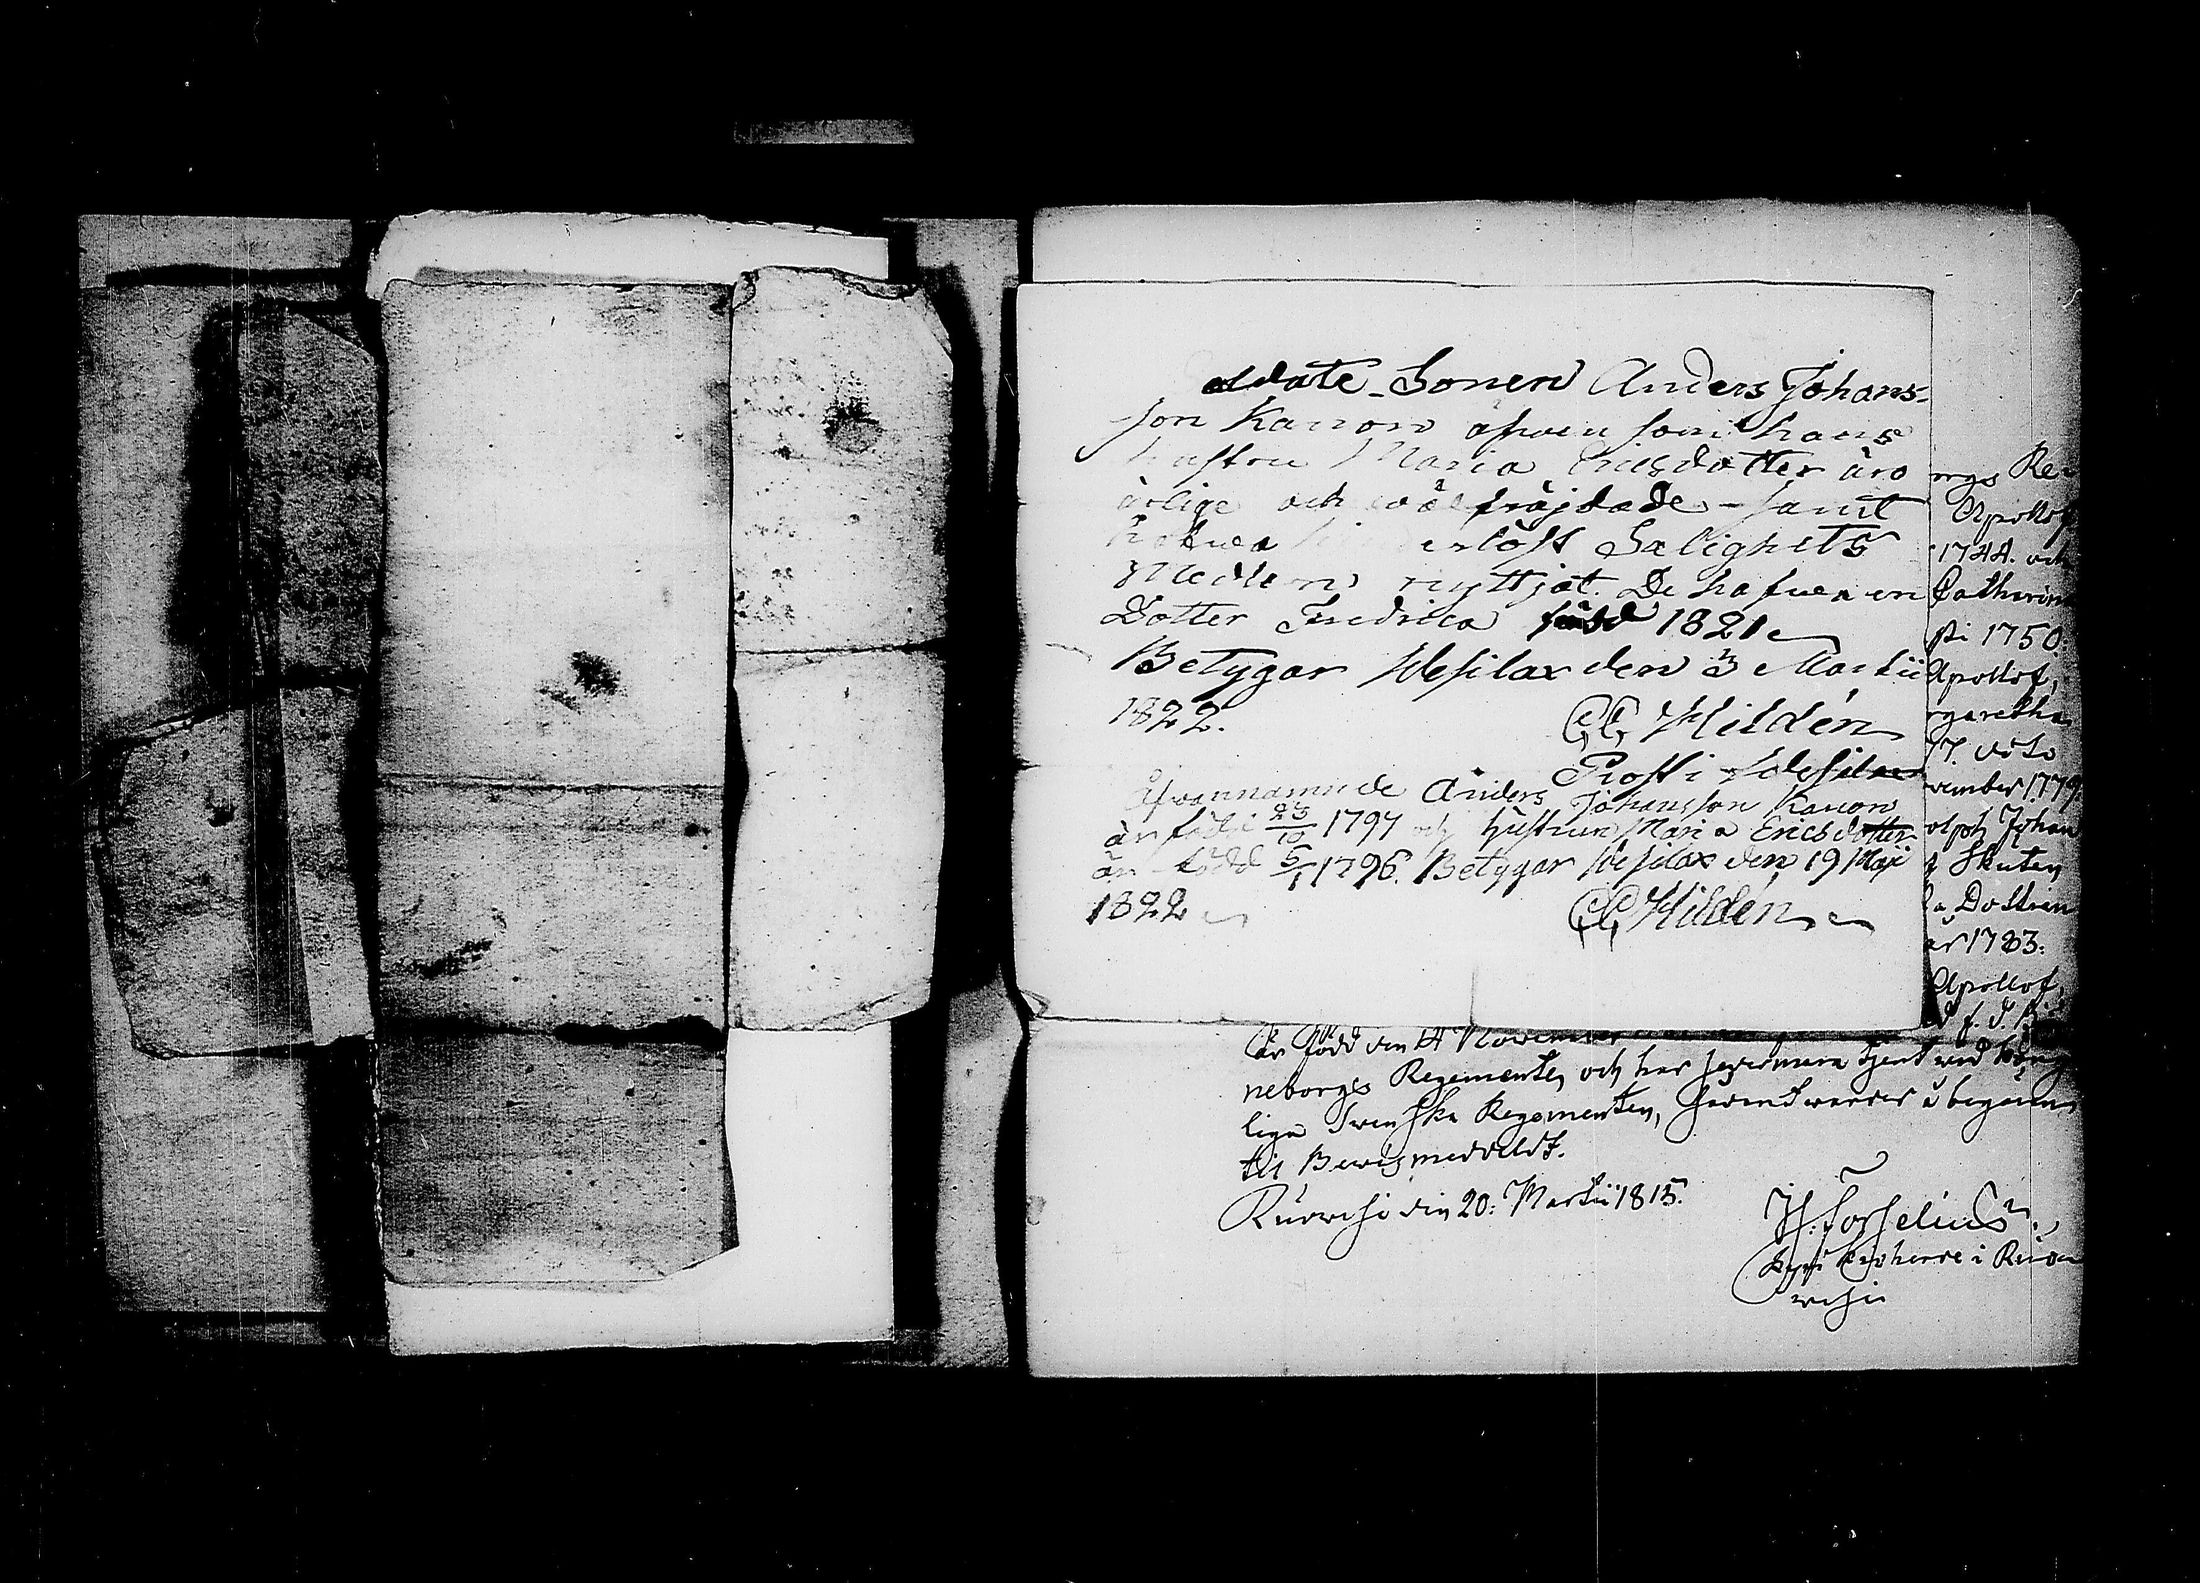 Soldate-Sonen Anders Johans-
son Kanon äfven som hans
hustru Maria Ericsdotter äro
ärlige och välfräjdade - samt
hafwa hinderlöst Salighets
Medlen nyttjat. De hafwa en
Dotter Fredrica född 1821
Betygar Wesilax den 3 Martii
1822.
CC Hildén
Prost i Wesilax
Ofvannämnde Anders Johansson Kanon
är född 23/10 1797 och hustrun Maria Ericsdotter
är född 5/1 1796. Betygar Wesilax den 19 Maji
1822
CC Hildén
rgs Re
Apollof
1744. och
Catharin
1750.
Apollof,
rgaretha
77. dito
vember 1779
olph Johan
Skuten
Dottren
er 1783:
Apollof,
är född den 14 November
neborgs Regemente, och har sedermera tjent wid Kong
liga Swenska Regementen,
til Bewis meddeldt.
Ruowesi den 20: Martii 1815.
H: Forselius
Kyrkoherde i Ruo
wesi